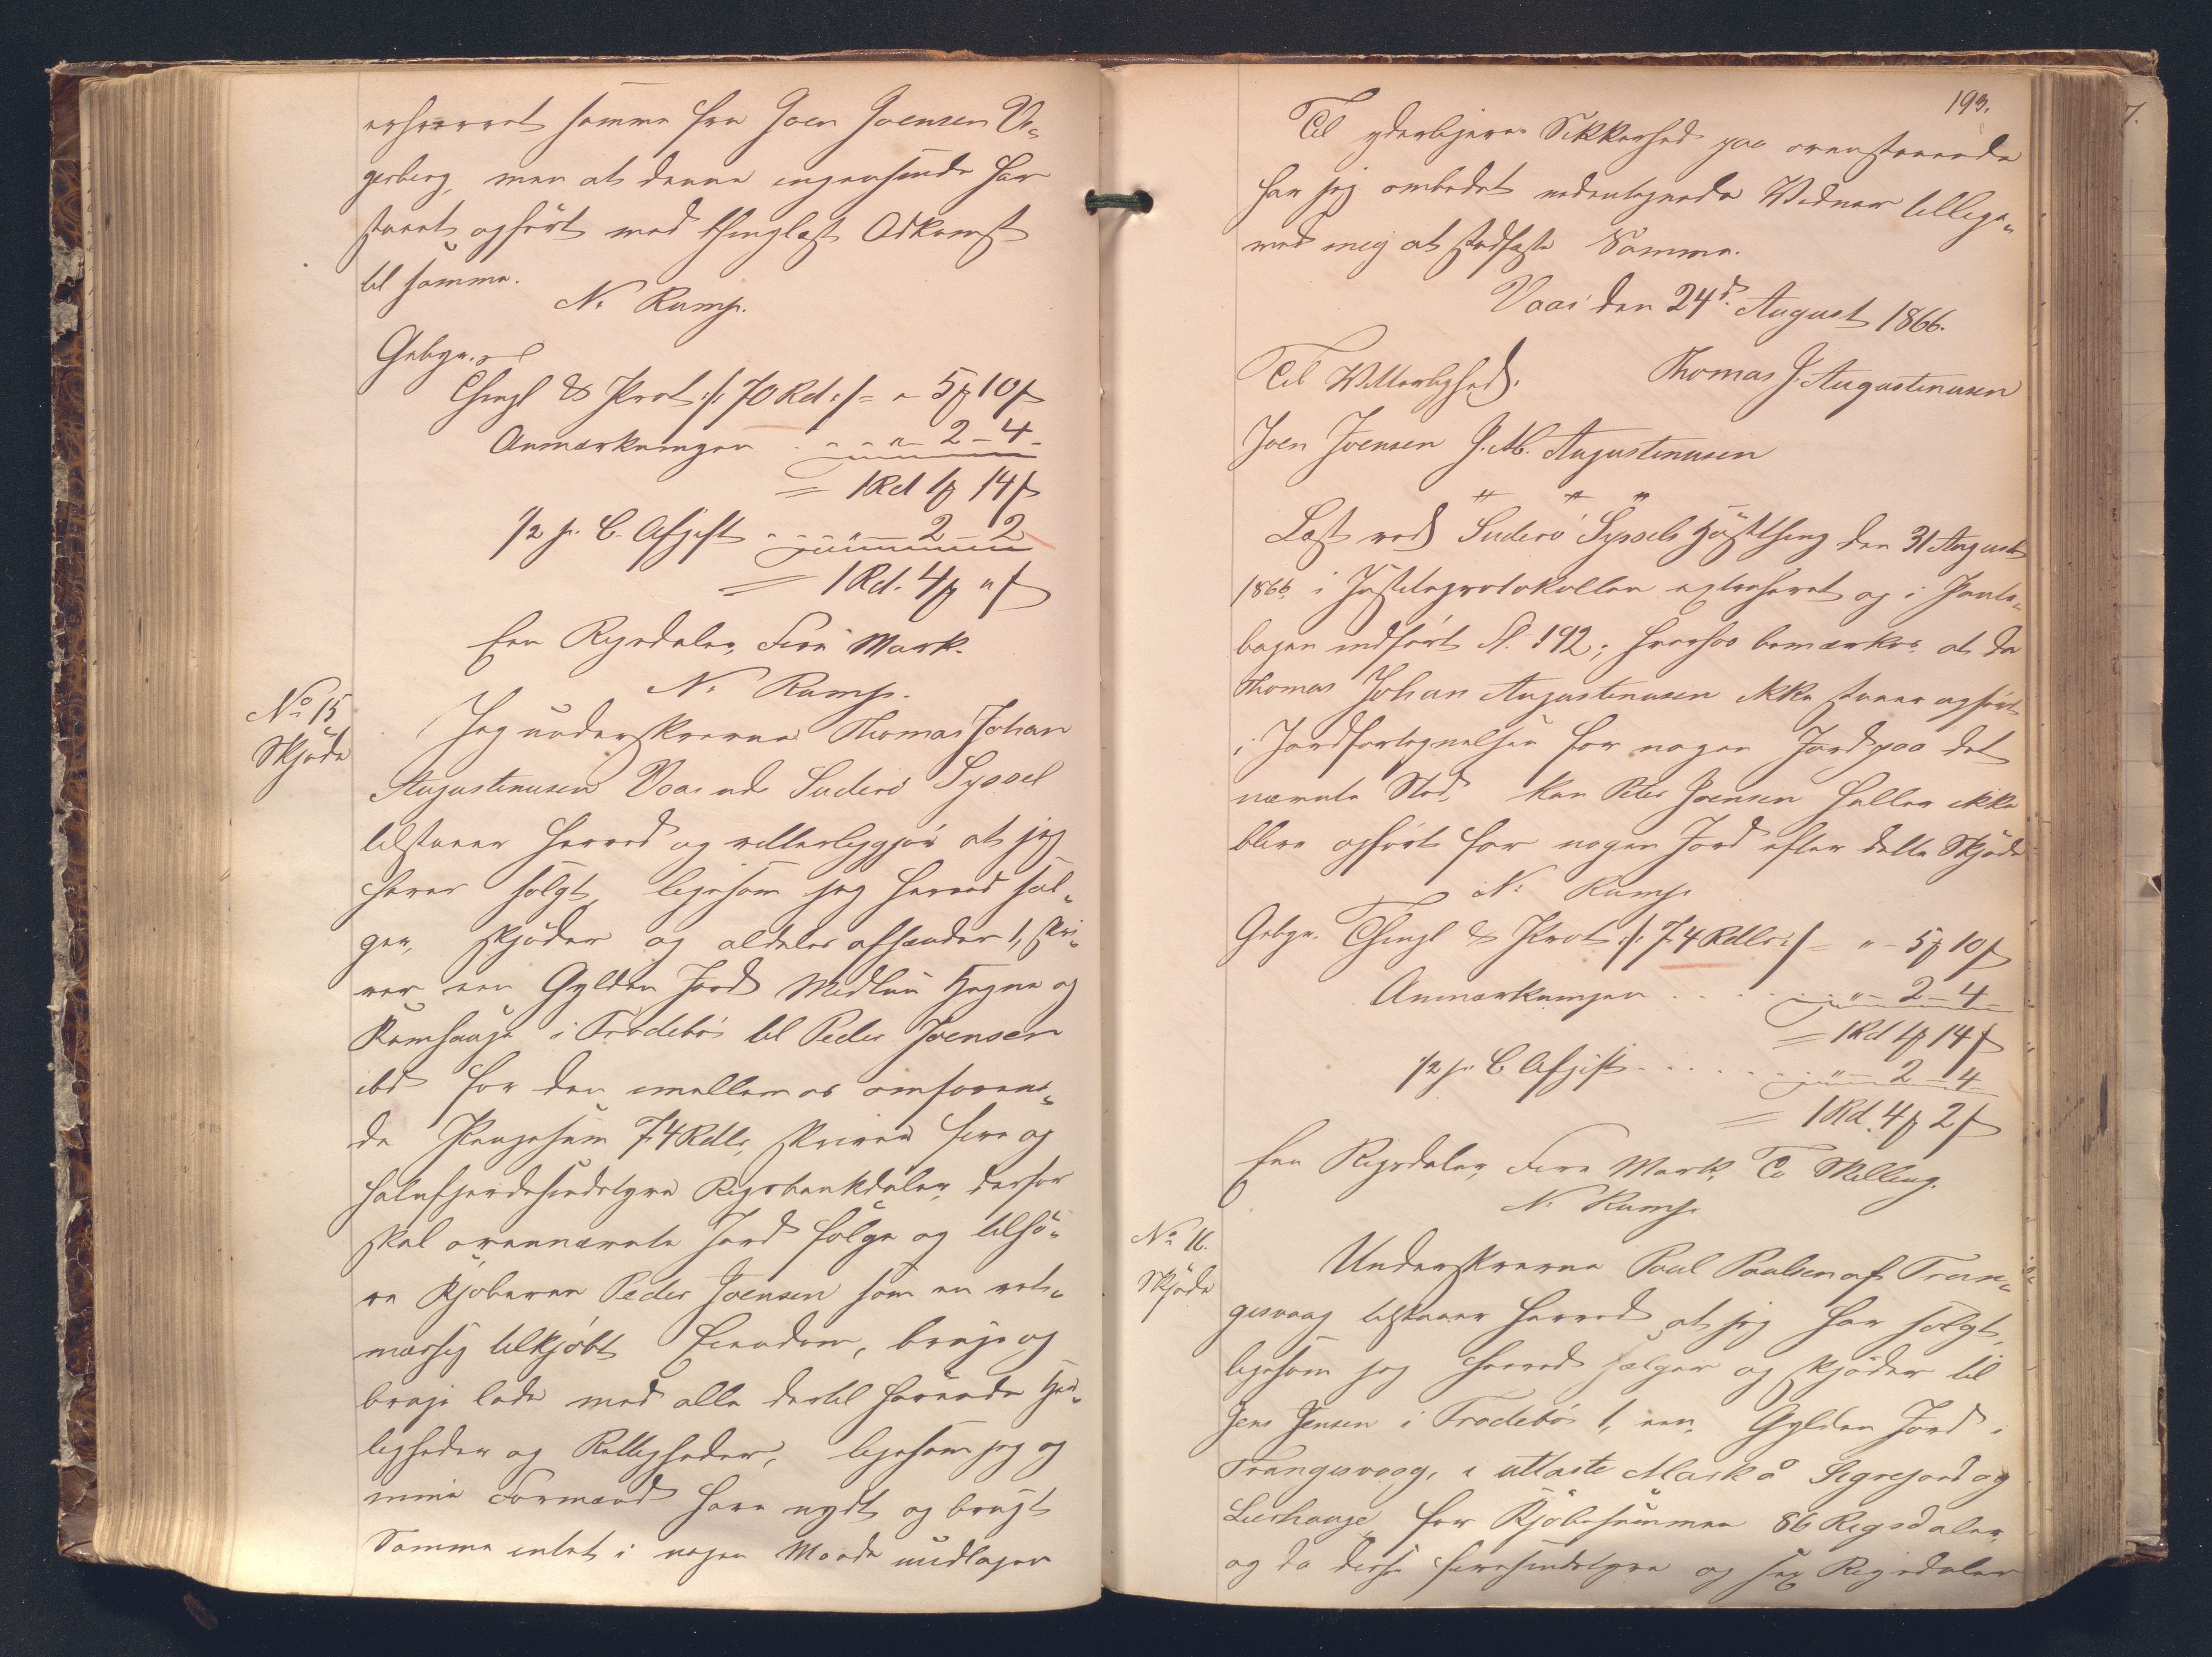 erhvervet samme fra Joen Joensen Ve-
gerberg, men at denne ingensinde har
staaet opført med thinglæst Adkomst
til samme.
N. Rump.
Gebyr.
Thingl & Prot :/: 70 Rd :/: = " - 5 ℔ 10 ſ
Anmærkningen . . . . " - 2 - 4 -
= 1 Rd 1 ℔ 14 ſ
1/2 pr. C. Afgift . . . . " - 2 - 2
= 1 Rd. 4 ℔ " ſ
Een Rigsdaler, Fire Mark.
N. Rump.
No 15
Skjøde
Jeg underskrevne Thomas Johan
Augustinusen Vaai udi Suderø Syssel
tilstaaer herved og vitterliggjør at jeg
haver solgt, ligesom jeg herved sæl-
ger, skjøder og aldeles afhænder 1, skri-
ver een Gylden Jord Midlun Hegne og
Kamhauge i Frodebø til Peder Joensen
ibd for den imellem os omforene-
de Pengesum 74 Rdlr, skriver fire og
halvfjerdesindstyve Rigsbankdaler, derfor
skal ovennævnte Jord følge og tilhø-
re Kjøberen Peder Joensen som en ret-
mæssig tilkjøbt Eiendom, bruge og
bruge lade med alle dertil hørende Her-
ligheder og Rettigheder, ligesom jeg og
mine Formænd have nydt og brugt
Samme intet i nogen Maade undtagen
193.
Til yderligere Sikkerhed paa ovenstaaende
har jeg ombedet undertegnede Vidner tillige-
med mig at stadfæste Samme.
Vaai den 24d. August 1866.
Til Vitterlighed. Thomas J. Augustinusen
Joen Joensen J. M. Augustinusen
" " "
Læst ved Suderø Syssels Høstthing den 31 August
1866 i Justitsprotokollen extraheret og i Pante-
bogen indført fl. 192; hvorhos bemærkes, at da
Thomas Johan Augustinusen ikke staaer opført
i Jordfortegnelsen for nogen Jord paa det
nævnte Sted, kan Peter Joensen heller ikke
blive opført for nogen Jord efter dette Skjøde
N. Rump.
Gebyr. Thingl & Prot :/: 74 Rdlr :/: = " - 5 ℔ 10 ſ
Anmærkningen . . . . . " - 2 - 4 -
= 1 Rd 1 ℔ 14 ſ
1/2 pr. C Afgift . . . . . " - 2 - 4
= 1 Rd. 4 ℔ 2 ſ
Een Rigsdaler, Fire Mark, To Skilling.
N. Rump.
No 16.
Skjøde
Underskrevne Poul Poulsen af Tran-
gesvaag tilstaaer herved at jeg har solgt,
ligesom jeg herved sælger og skjøder til
Jens Jensen i Frodebø 1, een, Gylden Jord i
Trangesvaag, i utlaste Mark å Segrejord og
Lierhauge, for Kjøbesummen 86 Rigsdaler,
og da disse firesindstyve og sex Rigsdaler